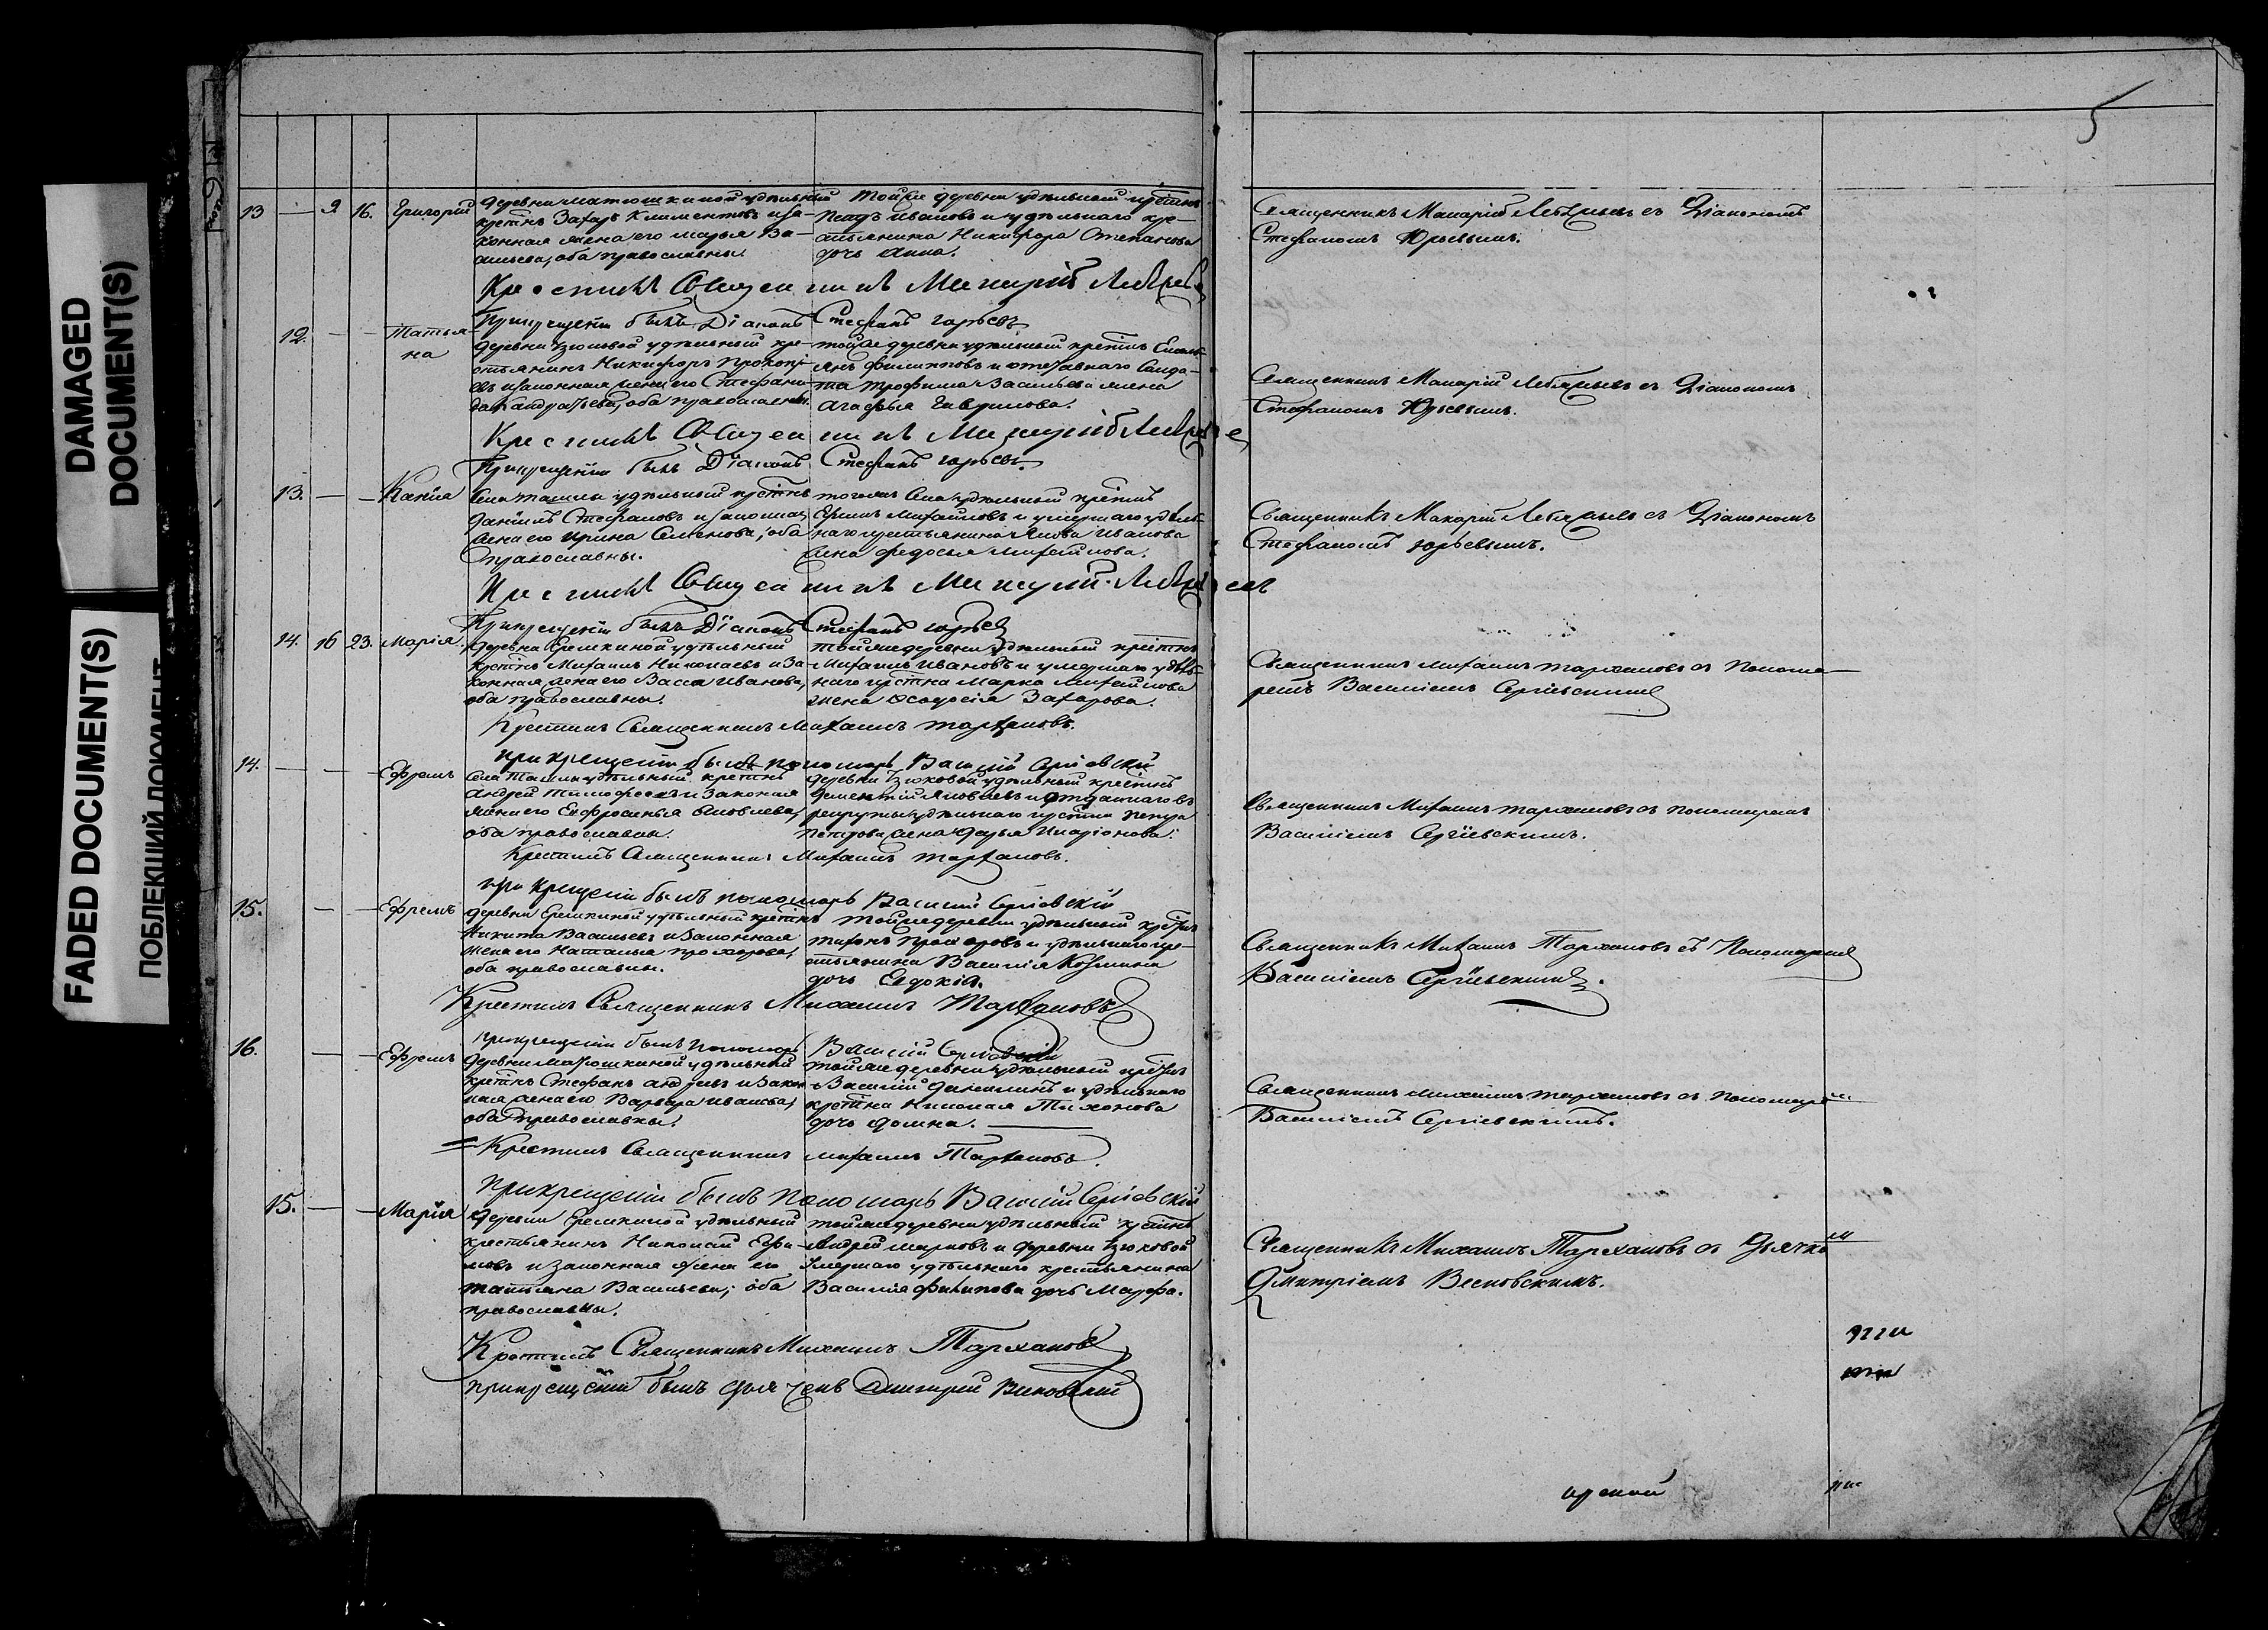 DAMAGED
DOCUMENT(S)
FADED DOCUMENT(S)
ПОБЛЕКШИЙ ДОКУМЕНТ
5
13 — 9 16. Григорій
деревни Матюшкиной удѣльный
крестнъ Захаръ Климентьевъ и за-
конная жена его Марья Ва-
сильева, оба православны.
Тойже деревни удѣльный крестнъ
Иванов и удѣльнаго кре-
стьянина Никифора Степанова
дочь Анна.
Священникъ Макарій Лебяжьевъ съ Діакономъ
Стефаномъ Юрьевымъ.
Крестилъ Священникъ Макарій
При крещеніи былъ Діаконъ Стефанъ Юрьевъ
12. — — Татья-
на
деревни Изюковой удѣльный кре-
стьянинъ Никифоръ Прокопь-
евъ и законная жена его Стефани-
да Кандратьева, оба православны.
тойже деревни удѣльный крестнъ Емель-
янъ Филипповъ и отставнаго Солда-
та Трофима Васильева жена
Агафья Гаврилова.
Священникъ Макарій Лебяжьевъ съ Діакономъ
Стефаномъ Юрьевымъ.
Крестилъ Священникъ Макарій
При крещеніи былъ Діаконъ Стефанъ Юрьевъ.
13. — — Ксенія
Села Ташлы удѣльный крестнъ
Даніилъ Стефановъ и законная
жена его Ирина Семенова, оба
православны.
тогоже Села удѣльный крестнъ
Ефимъ Михайловъ и умершаго удѣль-
наго крестьянина Якова Иванова
жена Федосья Михайлова.
Священникъ Макарій Лебяжьевъ съ Діакономъ
Стефаномъ Юрьевымъ.
Крестилъ Священникъ Макарій
При крещеніи былъ Діаконъ Стефанъ Юрьевъ
14. 16 23. Марія.
деревни Еремкиной удѣльный
крестнъ Михаилъ Николаевъ и за-
конная жена его Васса Иванова,
оба православны.
тойже деревни удѣльный крестнъ
Михаилъ Ивановъ и умершаго удѣль-
наго крестна Марка Михайлова
жена Феодосія Захарова.
Священникъ Михаилъ Тархановъ съ Понома-
ремъ Василіемъ Сергіевскимъ
Крестилъ Священникъ Михаилъ Тархановъ.
При крещеніи былъ пономарь Василій Сергіевскій
14. — — Ефремъ
Села Ташлы удѣльный крестнъ
Андрей Тимофеевъ и законная
жена его Евфросинья Яковлева,
оба православны.
деревни Изюковой удѣльный крестнъ
Дементій Яковлевъ и отданнаго въ
рекруты удѣльнаго крестна Петра
Петрова жена Дарья Иларіонова.
Священникъ Михаилъ Тархановъ съ пономаремъ
Василіемъ Сергіевскимъ.
Крестилъ Священникъ Михаилъ Тархановъ.
при крещеніи былъ пономарь Василій Сергіевскій
15. — — Ефремъ
деревни Еремкиной удѣльный крестнъ
Никита Васильевъ и законная
жена его Наталья Прохорова,
оба православны.
тойже деревни удѣльный крестнъ
Тихонъ Прохоровъ и удѣльнаго кре-
стьянина Василія Козьмина
дочь Евдокія.
Священникъ Михаилъ Тархановъ съ Пономаремъ
Василіемъ Сергіевскимъ.
Крестилъ Священникъ Михаилъ Тархановъ
при крещеніи былъ пономарь Василій Сергіевскій
16. — — Ефремъ
деревни Матюшкиной удѣльный
крестнъ Стефанъ Андреевъ и закон-
ная жена его Варвара Иванова,
оба православны.
тойже деревни удѣльный крестнъ
Василій Данилинъ и удѣльнаго
крестна Николая Тихонова
дочь Домна.
Священникъ Михаилъ Тархановъ съ пономаремъ
Василіемъ Сергіевскимъ.
Крестилъ Священникъ Михаилъ Тархановъ.
При крещеніи былъ пономарь Василій Сергіевскій
15. — — Марія
деревни Еремкиной удѣльный
крестьянинъ Николай Ефи-
мовъ и законная жена его
Татьяна Васильева; оба
православны.
тойже деревни удѣльный крестнъ
Андрей Марковъ и деревни Изюковой
умершаго удѣльнаго крестьянина
Василія Филипова дочь Марфа.
Священникъ Михаилъ Тархановъ съ Дьячкомъ
Дмитріемъ Весновскимъ.
Крестилъ Священникъ Михаилъ Тархановъ
при крещеніи былъ дьячекъ Дмитрій Весновскій